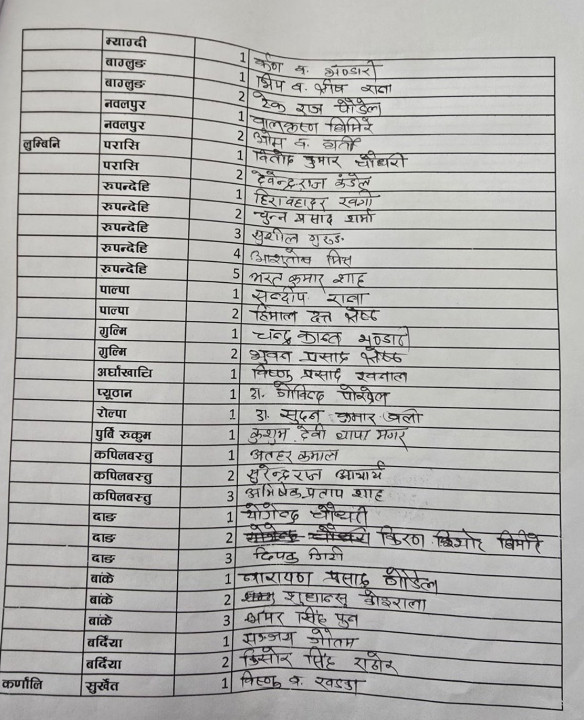 म्याग्दी 1 कर्ण ब. भण्डारी
बाग्लुङ 1 भिम ब.
बाग्लुङ 2 टेक राज पौडेल
नवलपुर 1 बालकृष्ण घिमिरे
नवलपुर 2 ओम ब. घर्ती
लुम्बिनि परासि 1 विनोद कुमार चौधरी
परासि 2 देवेन्द्रराज कंडेल
रुपन्देहि 1
रुपन्देहि 2 चुन्न प्रसाद शर्मा
रुपन्देहि 3 सुशील गुरुङ
रुपन्देहि 4 आशुतोष मिश्र
रुपन्देहि 5 भरत कुमार शाह
पाल्पा 1 सन्दीप राना
पाल्पा 2 हिमाल दत्त श्रेष्ठ
गुल्मि 1 चन्द्र कान्त भण्डारी
गुल्मि 2 भुवन प्रसाद श्रेष्ठ
अर्घाखाचि 1 विष्णु प्रसाद खनाल
प्यूठान 1 डा. गोविन्द पोखरेल
रोल्पा 1 डा. सुदन कुमार वली
पुर्वि रुकुम 1 कुशुम देवी थापा मगर
कपिलवस्तु 1 अतहर कमाल
कपिलवस्तु 2 सुरेन्द्रराज आचार्य
कपिलवस्तु 3 अभिषेक प्रताप शाह
दाङ 1 योगेन्द्र चौधरी
दाङ 2 किरण किशोर घिमिरे
दाङ 3 दिपक गिरी
बांके 1 नारायण प्रसाद गौडेल
बांके 2 सुधान्सु कोइराला
बांके 3 अमर सिंह पुन
बर्दिया 1 सञ्जय गौतम
बर्दिया 2 किसोर सिंह राठौर
कर्णालि सुर्खेत 1 विष्णु ब. खड्का